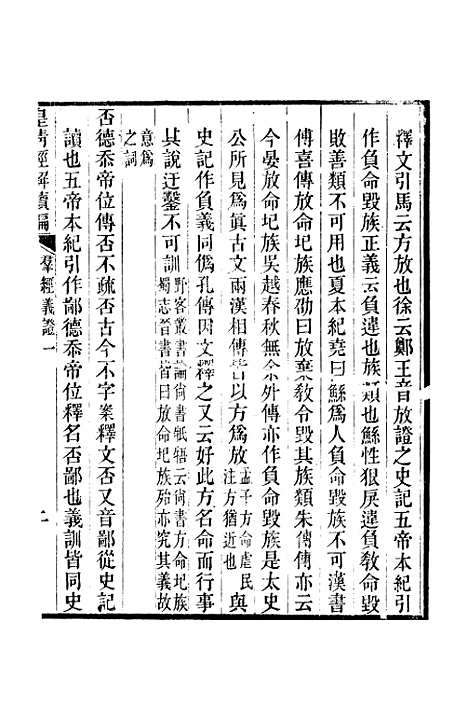 釋文引馬云方放也徐云鄭王音放證之史記五帝本紀引
作負命毀族正義云負違也族類也鯀性狠戾違負敎命毀
敗善類不可用也夏本紀堯曰鯀爲人負命毀族不可漢書
傅喜傳放命圮族應劭曰放棄敎令毀其族類朱傅傳亦云
今晏放命圮族吳越春秋無余外傳亦作負命毀族是太史
公所見爲眞古文兩漢相傳以方爲放孟子方命虐民注方猶近也與
史記作負義同僞孔傳因文釋之又云好此方名命而行事
其說迂鑿不可訓野客叢書論尙書牴牾云尙書方命圮族蜀志晉書皆曰放命圮族殆亦究其義故
意爲之詞
否德忝帝位傳否不疏否古今不字案釋文否又音鄙從史記
讀也五帝本紀引作鄙德忝帝位釋名否鄙也義訓皆同史
皇淸經解續編
羣經義證一
二